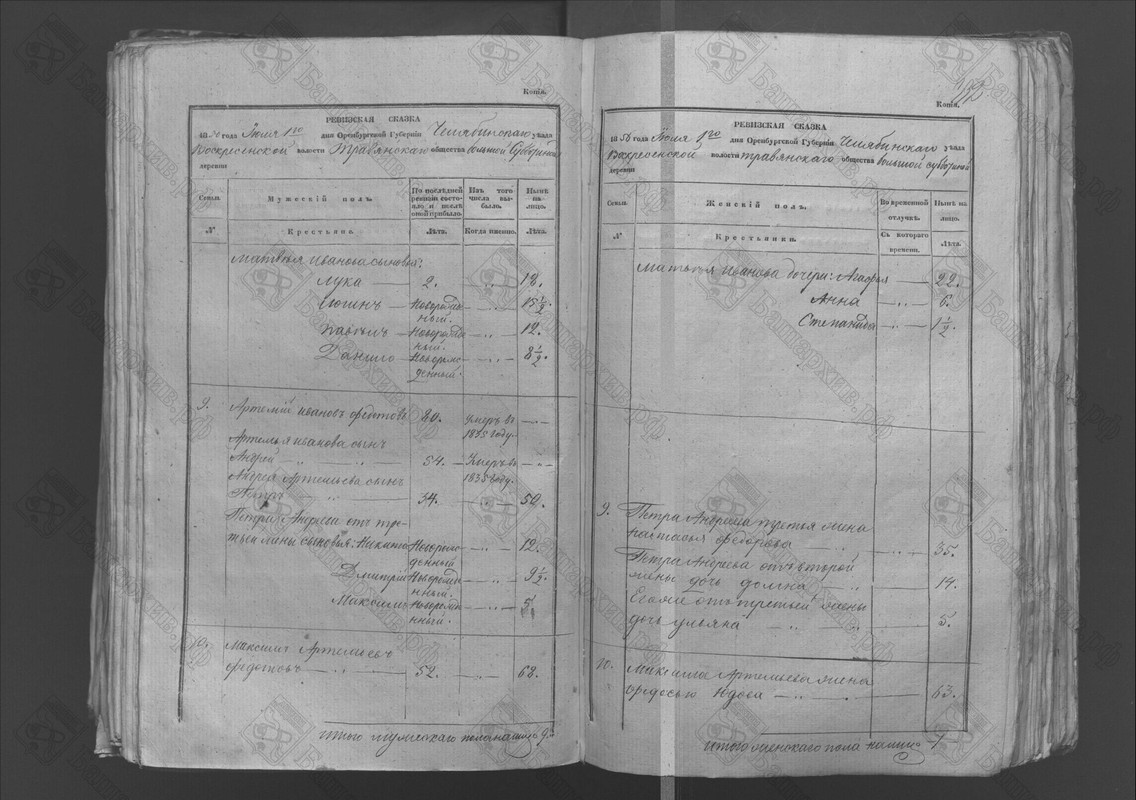 Копія.
РЕВИЗСКАЯ СКАЗКА
1850 года Июля 1го дня Оренбургской Губерніи Челябинскаго уѣзда
Воскресенской волости Травянскаго общества большой Субботиной
деревни
Семьи. Мужескій полъ. По послѣдней ревизіи состояло и послѣ оной прибыло. Изъ того числа выбыло. Нынѣ на лицо.
№ Крестьяне. Лѣта. Когда именно. Лѣта.
Матвѣя Иванова сыновья:
Лука 2. 18.
Новорожденный. 15 1/2
Новорожденный. 12.
Данило Новорожденный. 8 1/2.
9. Артемій Ивановъ Федотовъ 80. умеръ въ 1835 году.
Артемья Иванова сынъ
Андрей 54. Умеръ въ 1835 году.
Андрея Артемьева сынъ
Петръ 34. 50.
Петра Андреева отъ третьей жены сыновья: Новорожденный 12.
Дмитрій Новорожденный. 9 1/2.
Максимъ Новорожденный. 5.
10. Максимъ Артемьевъ
Федотовъ 52. 68.
Итого мужескаго пола налицо 9.
Копія.
РЕВИЗСКАЯ СКАЗКА
1850 года Июля 1го дня Оренбургской Губерніи Челябинскаго уѣзда
Воскресенской волости травянскаго общества большой субботиной
деревни
Семьи. Женскій полъ. Во временной отлучкѣ. Нынѣ на лицо.
№ Крестьянки. Съ котораго времени. Лѣта.
Матвѣя Иванова дочери: Агафья 22.
Анна 6.
Степанида 1 1/2.
9. Петра Андреева третья жена
Настасья Федорова 35.
Петра Андреева отъ второй
жены дочь Домна 14.
Егоже отъ третьей жены
дочь ульяна 5.
10. Максима Артемьева жена
Федосья 63.
Итого женскаго пола налицо 7
Башархив.рф